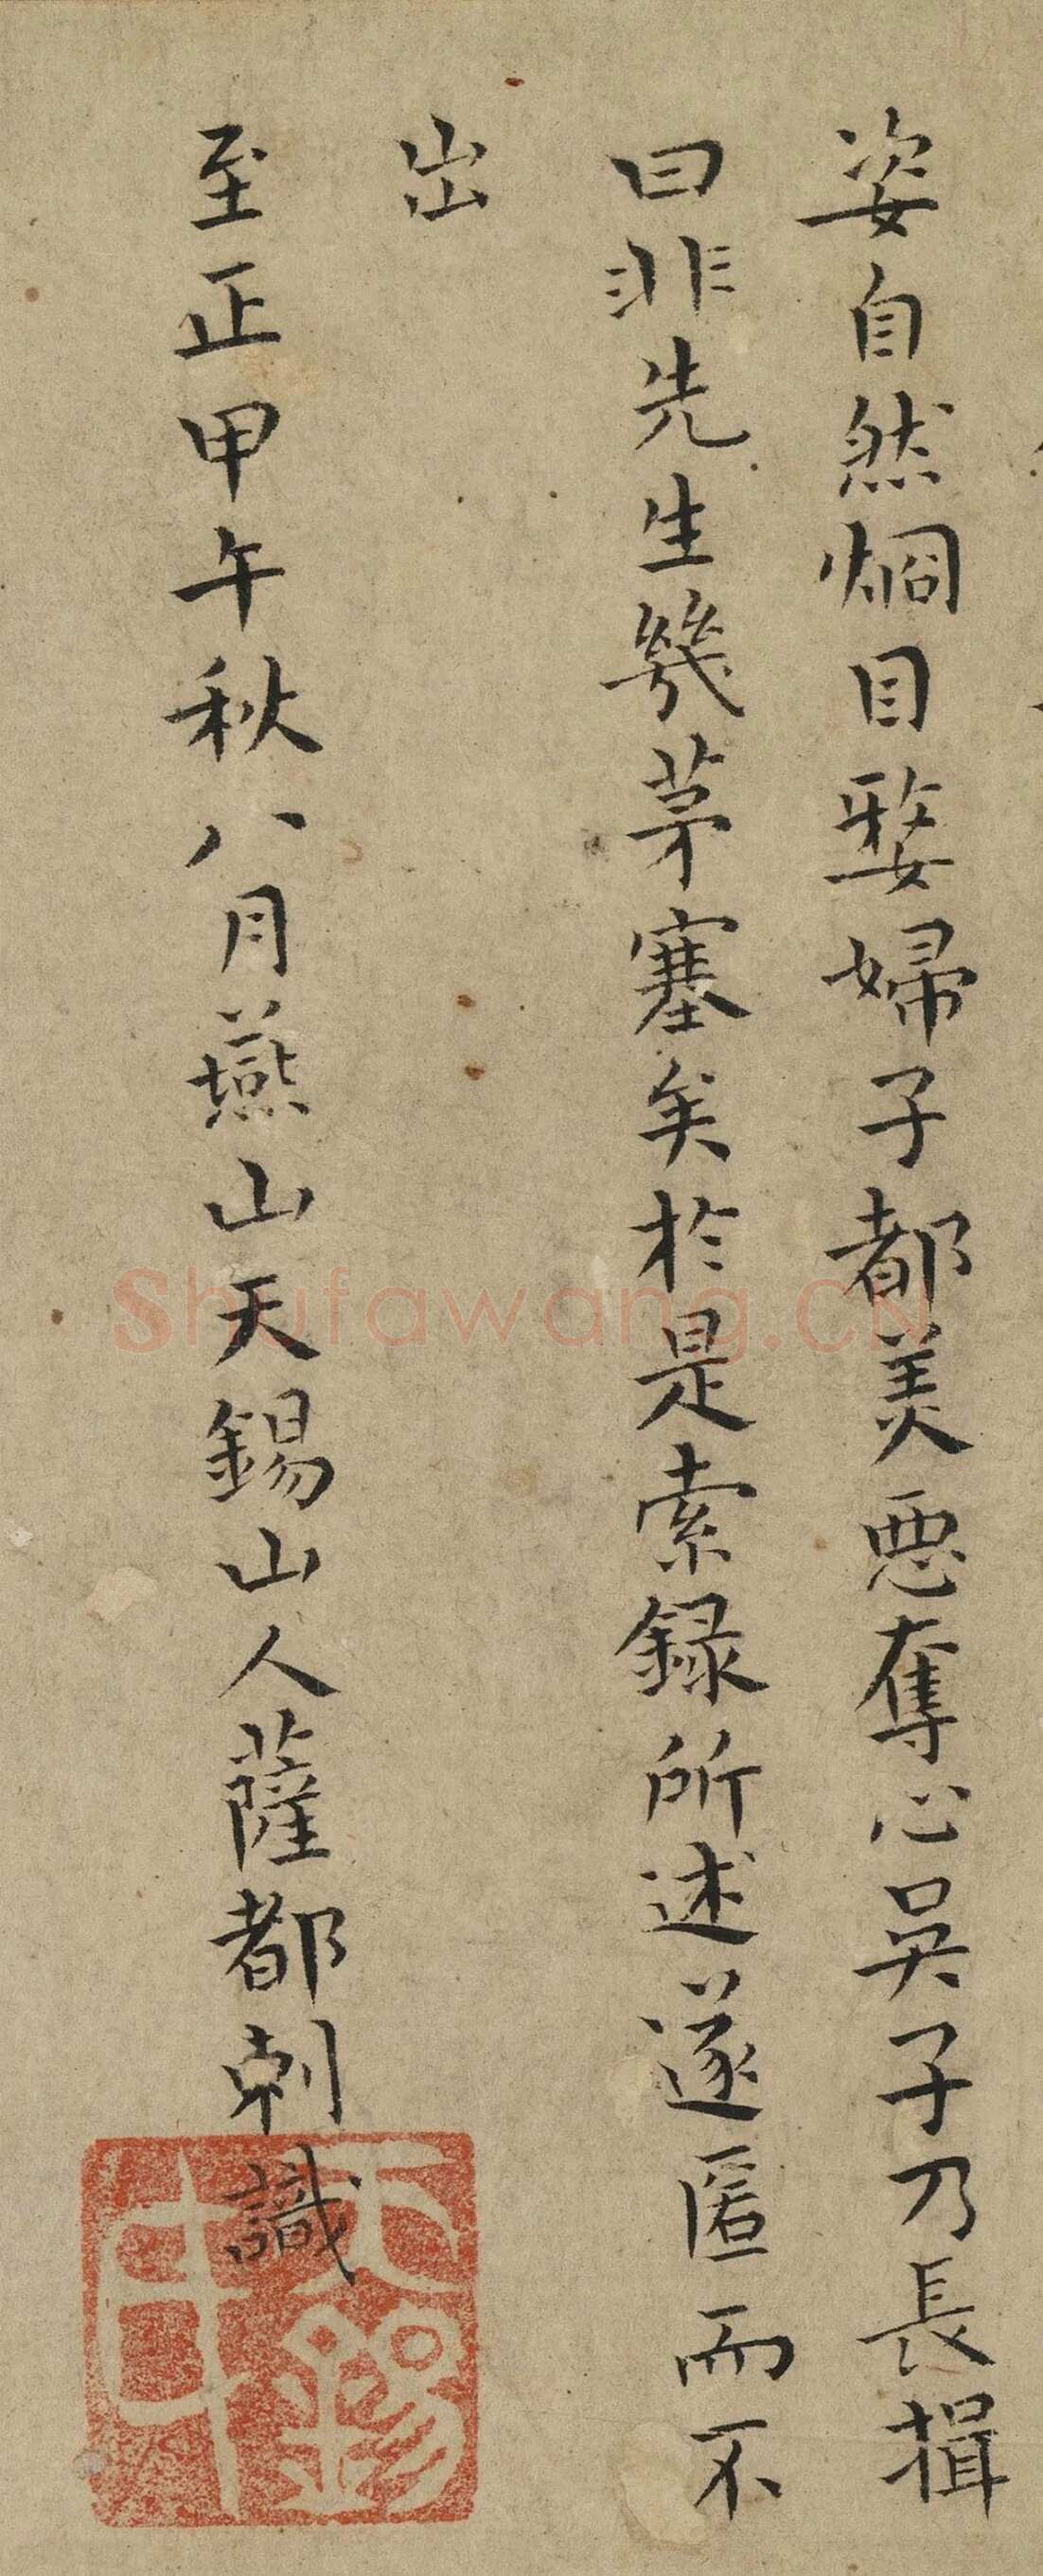 姿自然烱目婺婦子都美惡奪心吳子乃長揖
曰非先生幾茅塞矣於是索録所述遂匿而不
出
至正甲午秋八月燕山天錫山人薩都剌識
Shufawang.CN